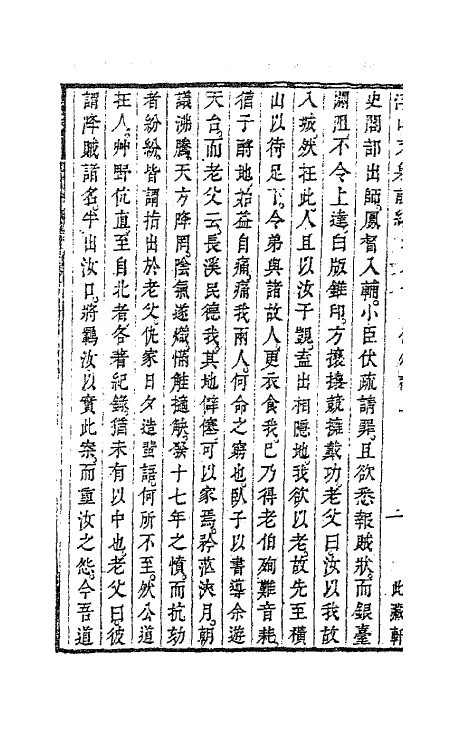 此藏軒
史閣部出師。鳳督入輔。小臣伏疏請罪。且欲悉報賊狀。而銀臺
瀾沮不令上達。白版錐印。方攘攘競擁戴功。老父曰。汝以我故
入城。然在此人且以汝予覬。盍出相隱地。我欲以老。故先至橫
山以待足下。令弟與諸故人。更衣食我。已乃得老伯殉難音耗。
信予酹地。始益自痛。痛我兩人。何命之窮也。臥子以書導余遊
天台。而老父云。長溪民德我。其地僻僿。可以家焉。將浹月。朝
議沸騰。天方降罔。陰氣遂熾。觸觸擿觖。發十七年之憤。而抗劾
者紛紛。皆謂指出於老父。仇家日夕造蜚語。何所不至。然公道
在人。艸野伉直。至自北者。各著紀錄。猶未有以中也。老父曰。彼
謂降賊諸名。半出汝口。將羈汝以實此案。而重汝之怨。今吾道